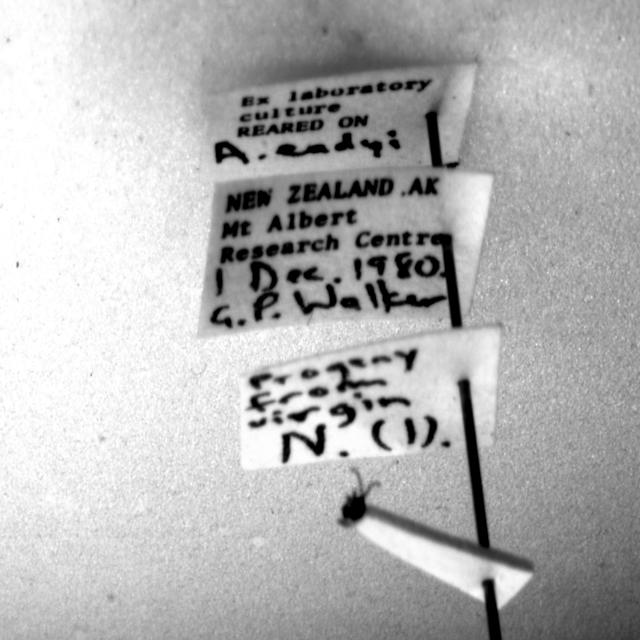 Ex laboratory
culture
REARED ON
A. eadyi
NEW ZEALAND .AK
Mt Albert
Research Centre
1 Dec. 1980.
G.P. Walker
Progeny
from
virgin
N. (1).